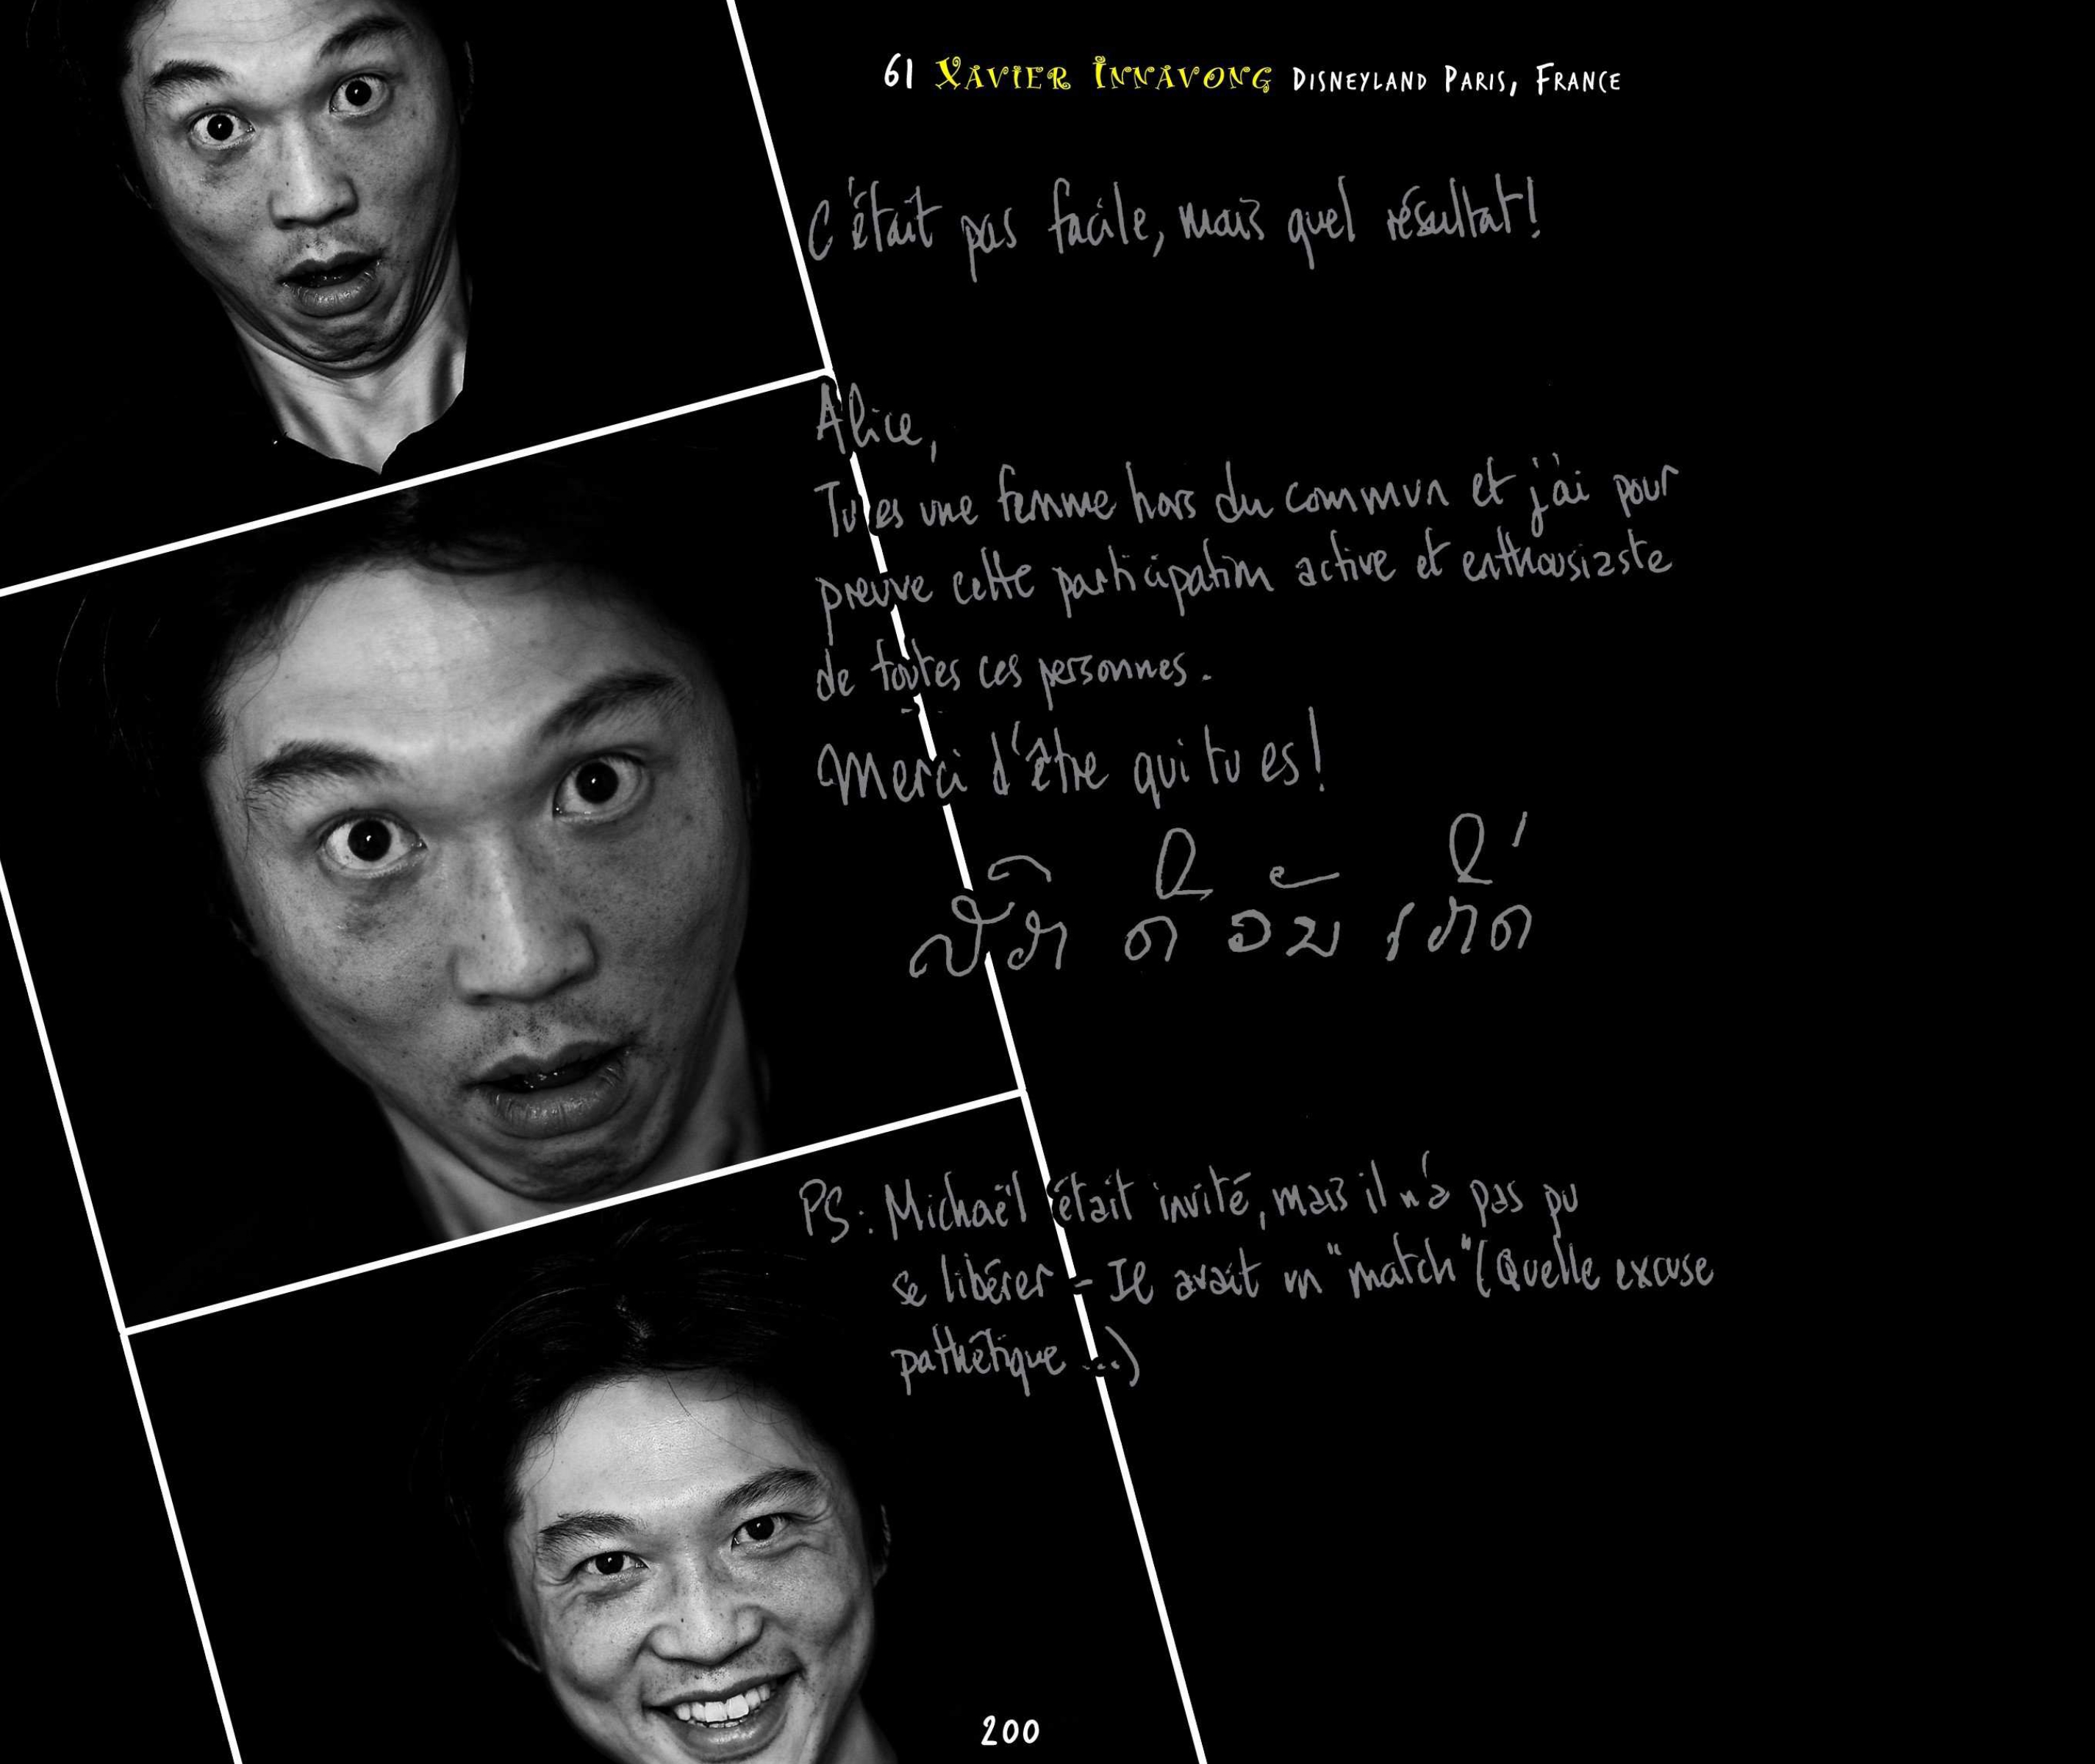 61 XAVIER INNAVONG DISNEYLAND PARIS, FRANCE
C'était pas facile, mais quel résultat!
Alice,
Tu es une femme hors du commun et j'ai pour
preuve cette participation active et enthousiaste
de toutes ces personnes.
Merci d'être qui tu es!
PS: Michaël était invité, mais il n'a pas pu
se libérer - Il avait un "match" (Quelle excuse
pathétique ...)
200